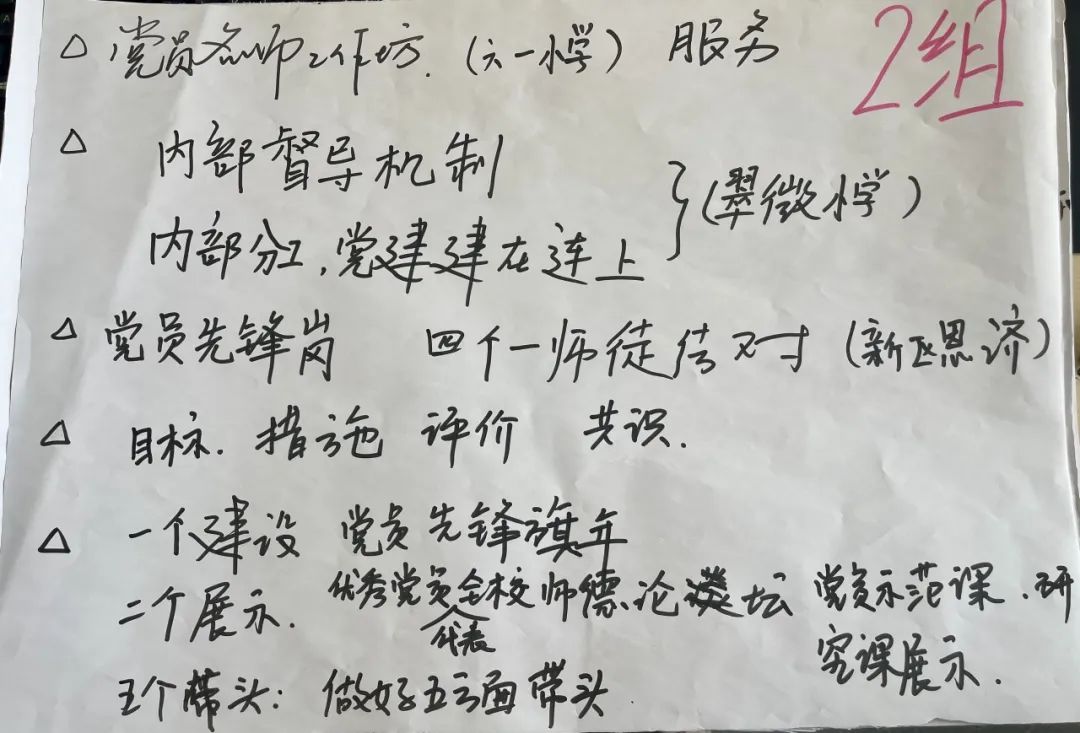 △ 党员名师工作坊.（六一小学） 服务
2组
△ 内部督导机制
内部分工,党建建在连上 }（翠微小学）
△ 党员先锋岗 四个一师徒结对（新区恩济）
△ 目标. 措施 评价 共识.
△ 一个建设 党员先锋旗
二个展示. 优秀党员代表全校师德论坛 党员示范课.研
究课展示.
五个带头: 做好五方面带头